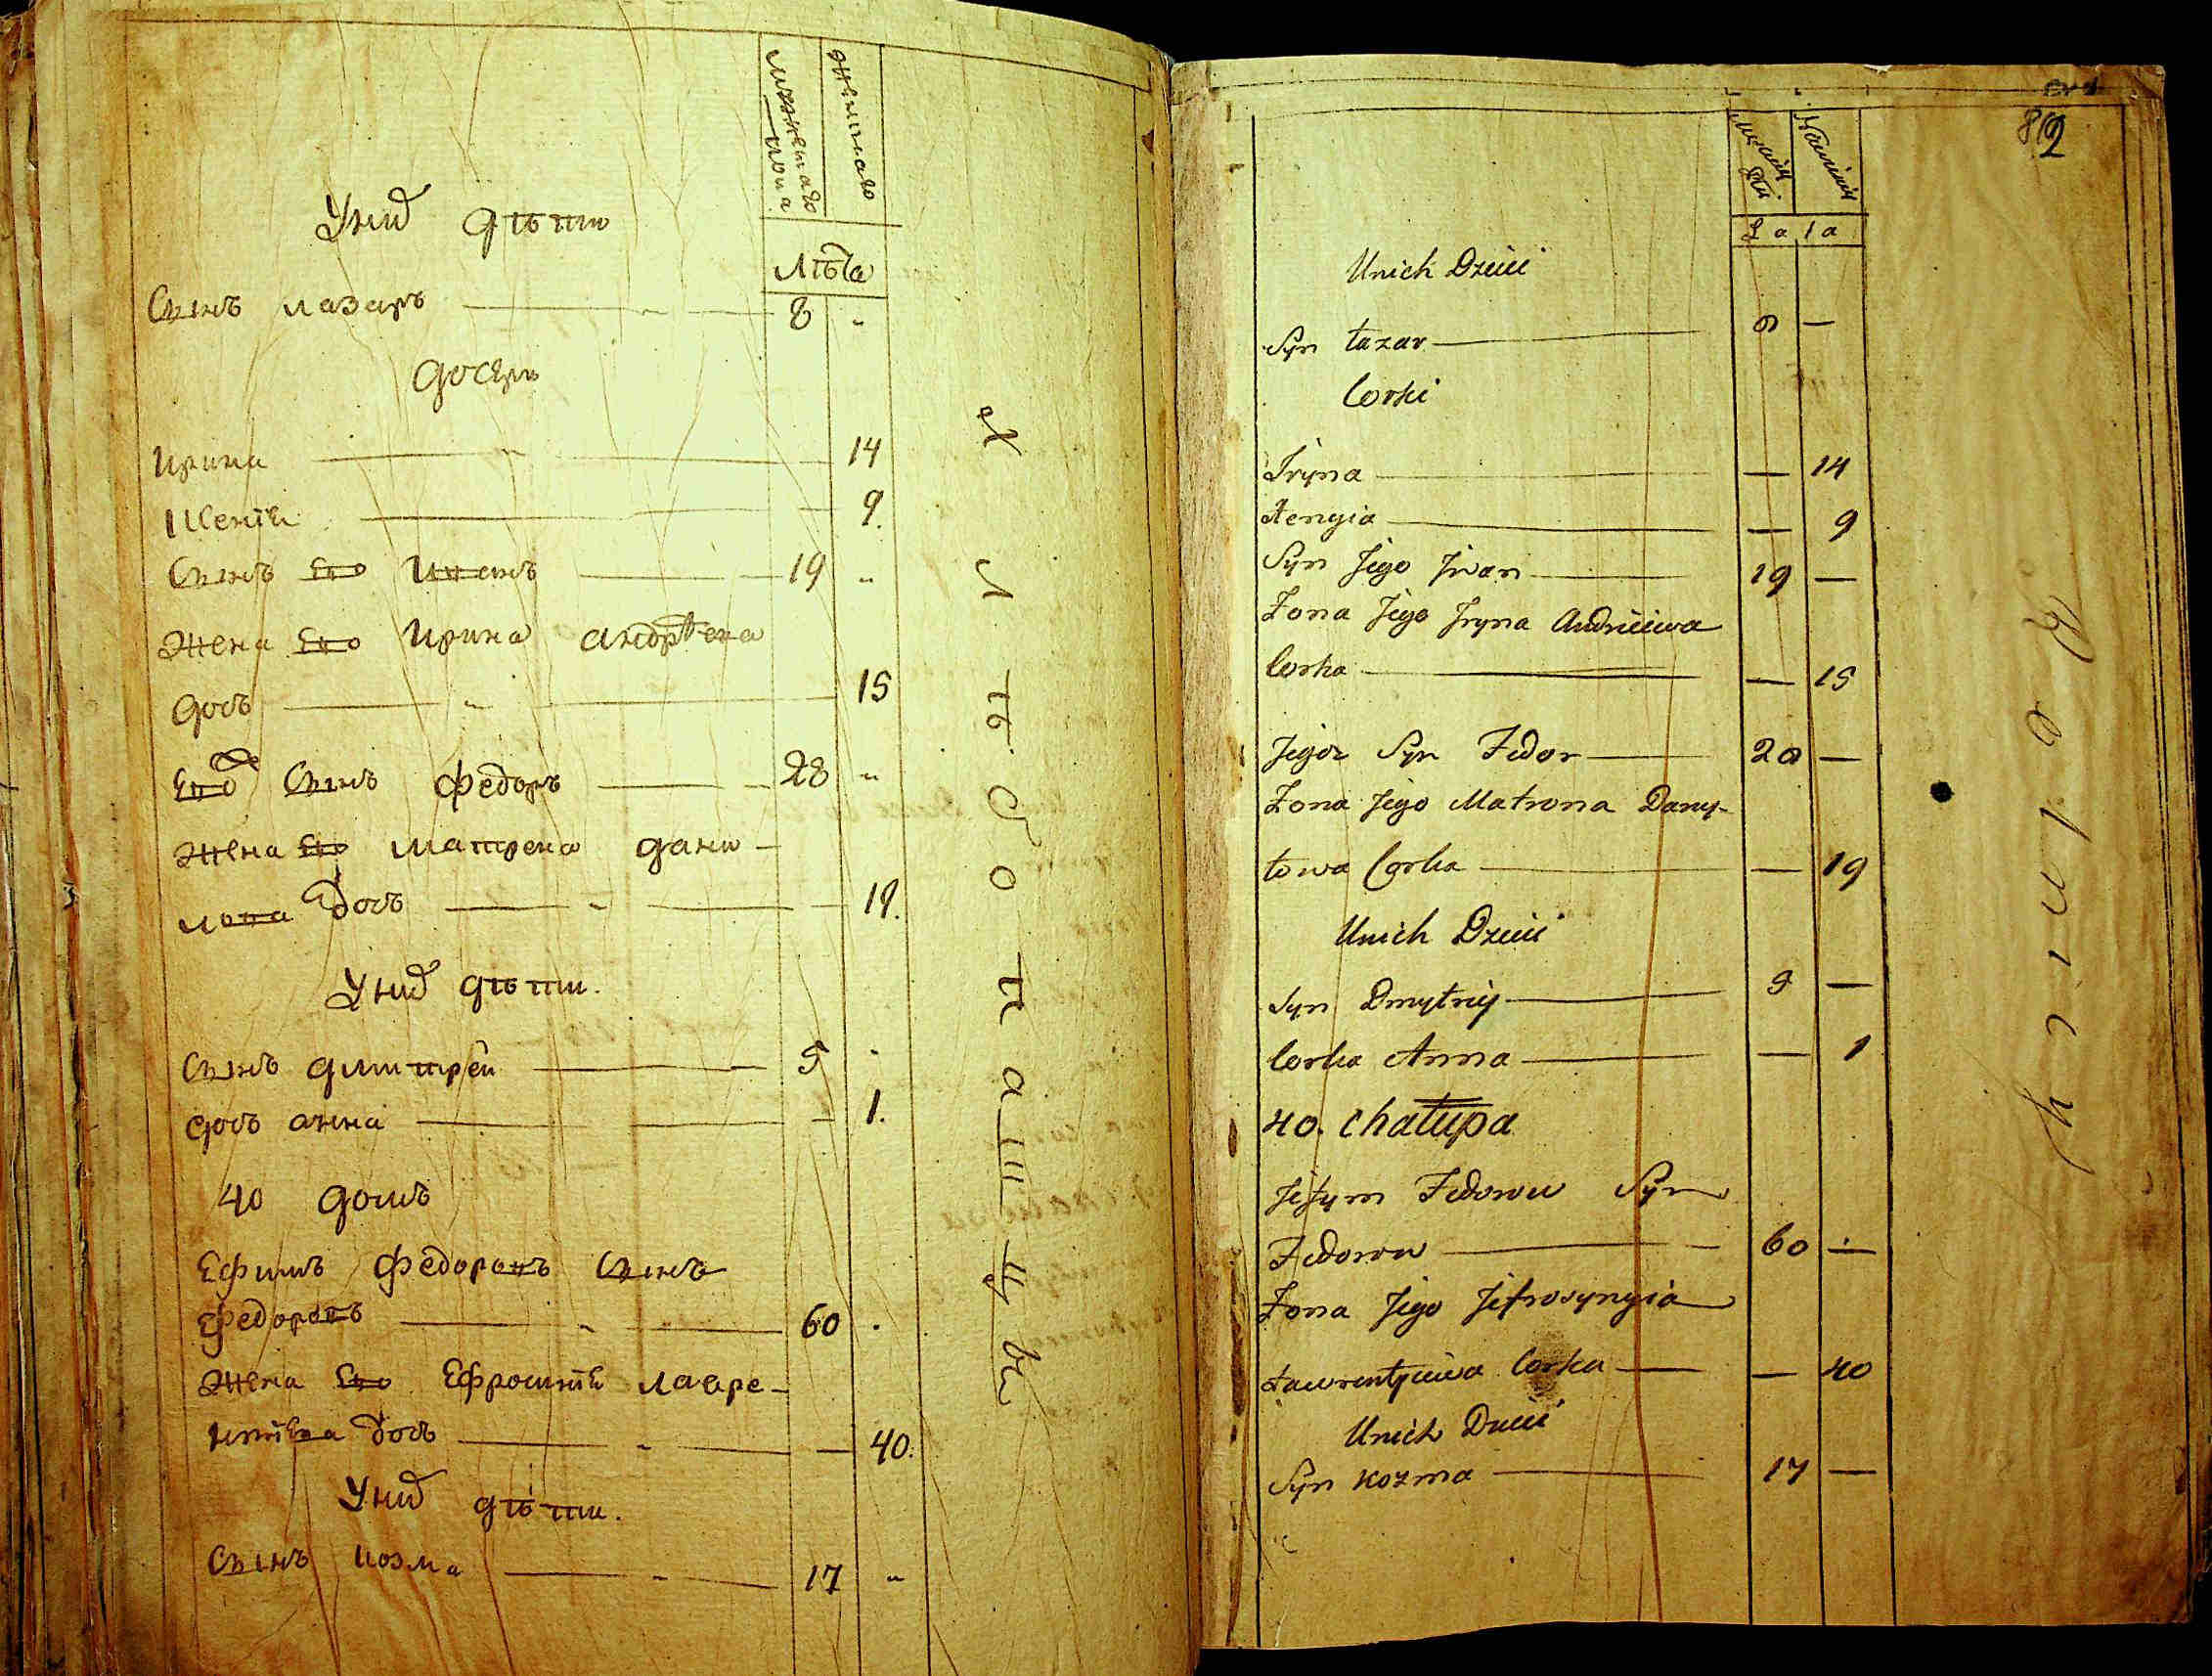 мужеска
пола
женска
Лѣта
У них дѣти
Сынъ лазаръ 8 "
дочери
Ирина 14
Ксенїя 9.
Сынъ Его Иванъ 19 "
Жена Его Ирина андрѣева
дочь 15
Его Сынъ Федоръ 28 "
Жена Его матрена дани-
лова дочь 19.
У них дѣти.
Сынъ дмитрей 5 "
дочь анна 1.
40 домъ
Ефимъ Федоровъ Сынъ
Федоровъ 60 .
Жена Его Ефросинїя лавре-
нтїева дочь 40.
У них дѣти.
Сынъ козма 17 "
Хлѣбопашцы
812
Lata
Unich Dzieci
Syn Łazar 8 —
Corki
Iryna — 14
Xenyia — 9
Syn Jego Jwan 19 —
Żona Jego Jryna Andrieiewa
Corka — 15
Jegoz Syn Fedor 28 —
Żona Jego Matrona Dany-
łowa Corka — 19
Unich Dzieci
Syn Dmytriy 5 —
Corka Anna — 1
40. Chałupa
Jefym Fedorow Syn
Fedorow 60 —
Żona Jego Jefrosynyia
Ławrentyiewa Corka — 40
Unich Dzieci
Syn Kozma 17 —
Rolnicy